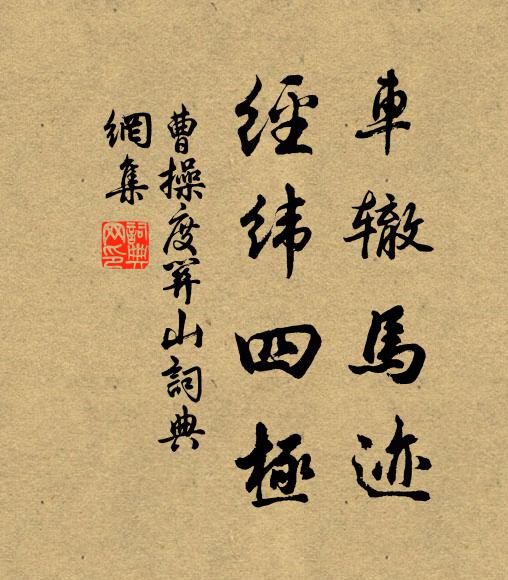 車辙馬迹
經緯四極
曹操度関山詞典
網集
詞典
网印